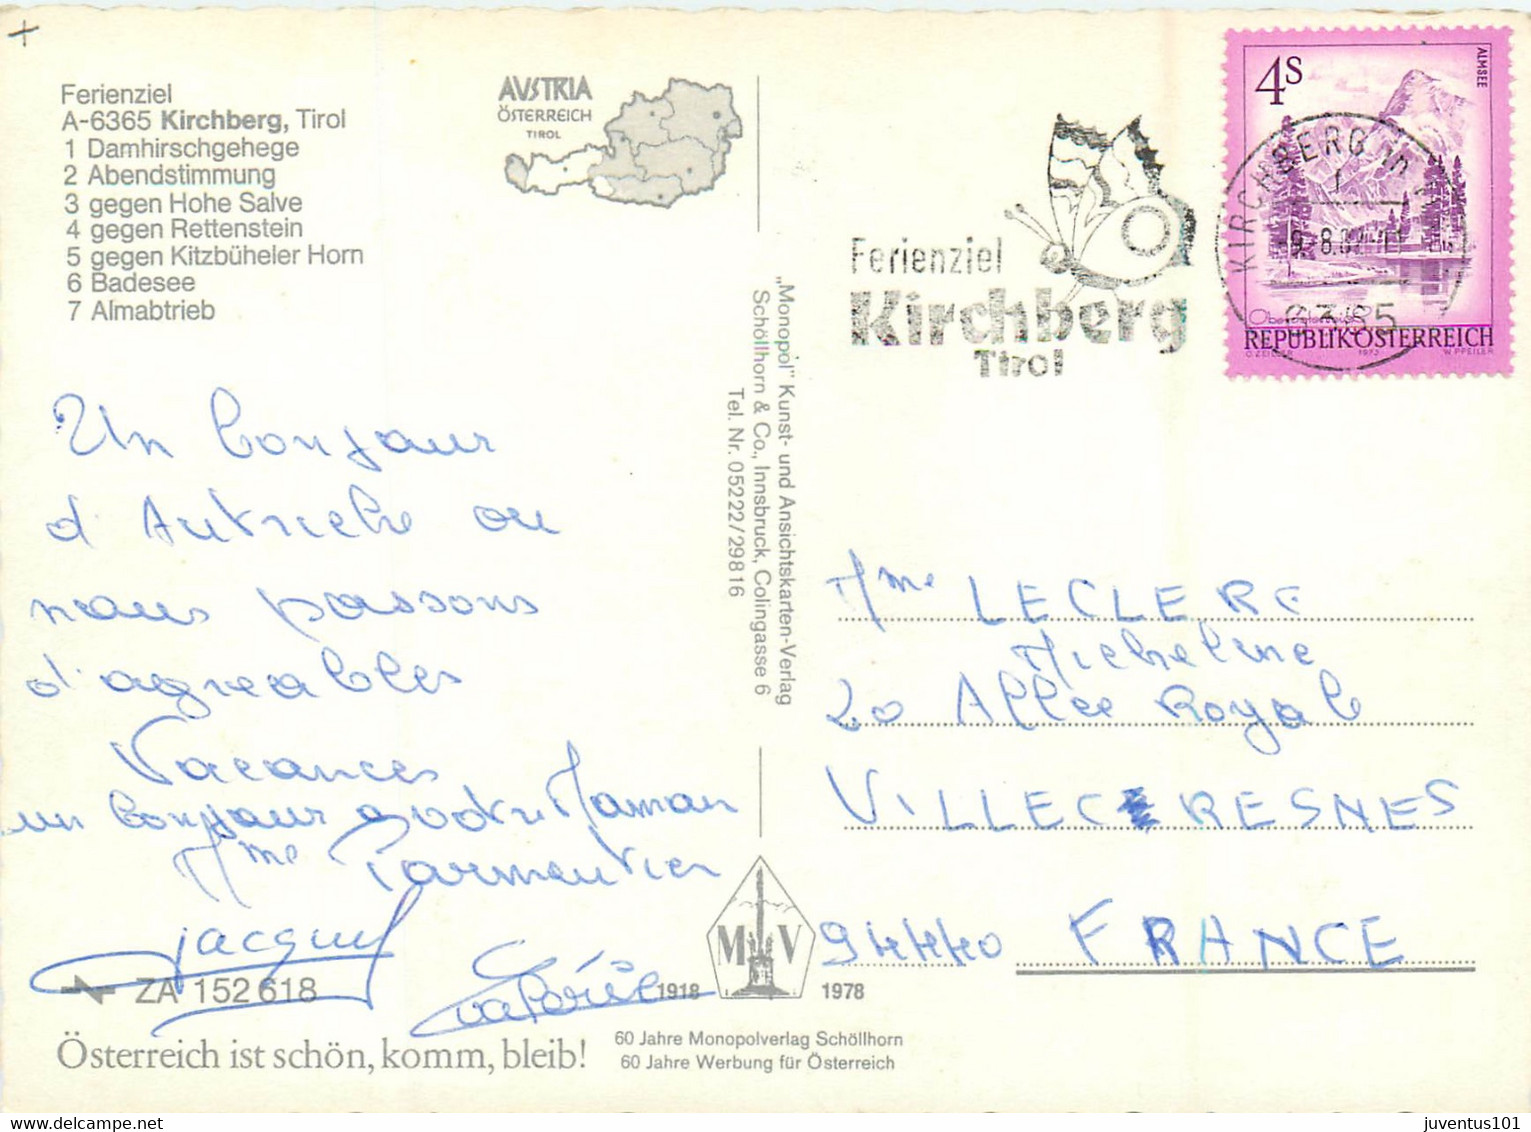 Ferienziel
A-6365 Kirchberg, Tirol
1 Damhirschgehege
2 Abendstimmung
3 gegen Hohe Salve
4 gegen Rettenstein
5 gegen Kitzbüheler Horn
6 Badesee
7 Almabtrieb
AVSTRIA
ÖSTERREICH
TIROL
Un bonjour
d'Autriche ou
nous passons
d'agreables
Vacances
un bonjour a votre Maman
Mme Parmentier
jacques
Valérie
ZA 152 618
Österreich ist schön, komm, bleib!
„Monopol" Kunst- und Ansichtskarten-Verlag
Schöllhorn & Co., Innsbruck, Colingasse 6
Tel. Nr. 05222/29816
M V
1918 1978
60 Jahre Monopolverlag Schöllhorn
60 Jahre Werbung für Österreich
Ferienziel
Kirchberg
Tirol
KIRCHBERG in
6365
4S
ALMSEE
REPUBLIK ÖSTERREICH
O. ZEILLER 1973 W. PFEILER
Mme LECLERC
Micheline
20 Allee Royale
VILLECRESNES
94440 FRANCE
juventus101
www.delcampe.net